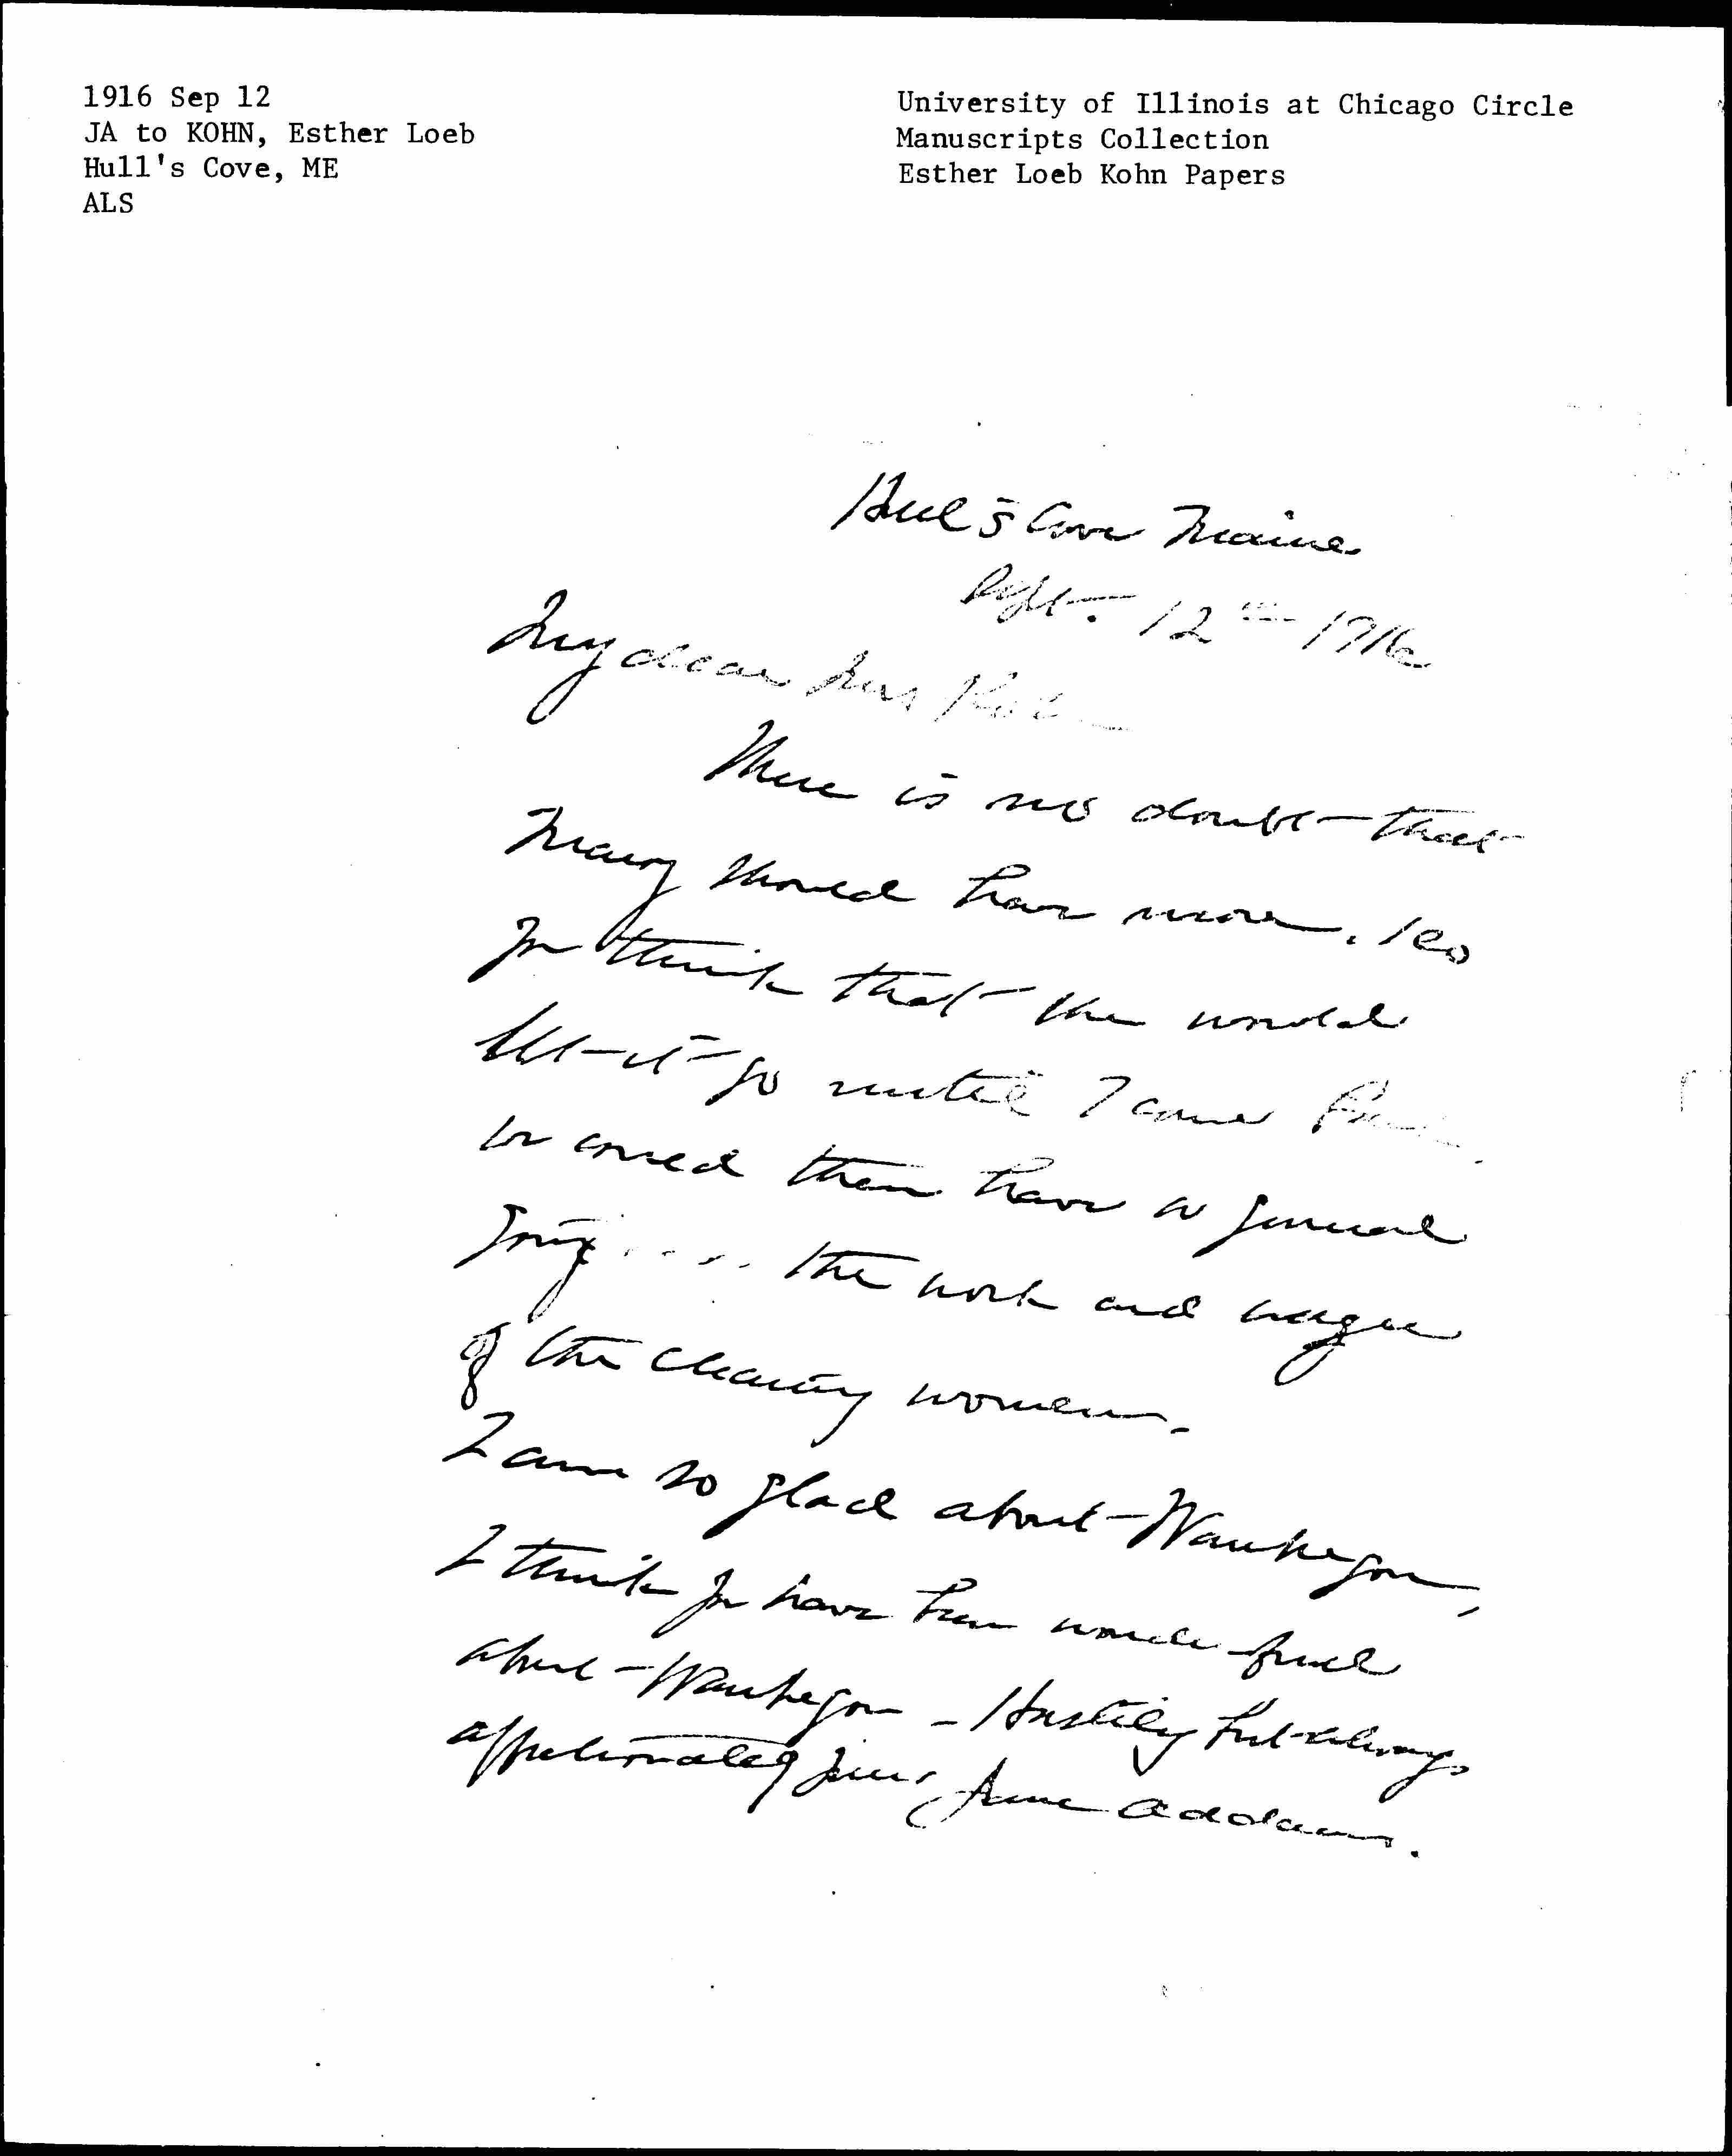 1916 Sep 12
JA to KOHN, Esther Loeb
Hull's Cove, ME
ALS
University of Illinois at Chicago Circle
Manuscripts Collection
Esther Loeb Kohn Papers
Hull's Cove Maine
Sept. 12th 1916
My dear Mrs Kohn
There is no doubt that
Mary should have more. Do
you think that she would
let it go until I come back
we could then have a general
going over the work and wages
of the cleaning women.
I am so glad about Waukegon,
I think you have been wonderful
about Waukegon - Hastily but always
affectionately yours Jane Addams.